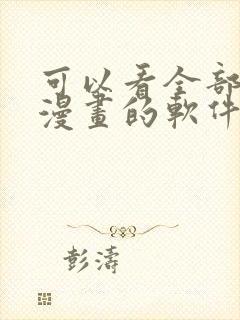 可以看全部
漫畫的軟件
彭濤